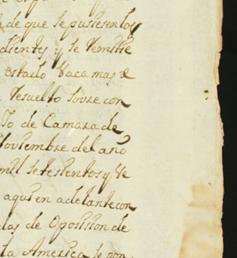 de que se pusiesen los
dientes y se remitie
estado Vacamas e
resuelto sovre con
to de Camara de
Noviembre del año
mil setesientos y se
aqui en adelante con
las de Oposision de
la America se pon